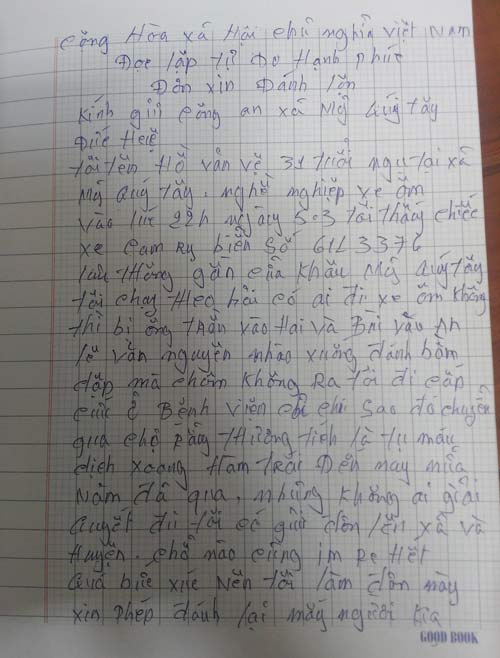 Cộng Hòa xã Hội chủ nghĩa việt Nam
Độc lập tự Do Hạnh Phúc
Đơn xin Đánh lộn
Kính gửi công an xã Mỹ Quý tây
Đức Huệ
tôi tên Hồ văn vẽ 31 tuổi ngụ tại xã
Mỹ Quý tây. nghề nghiệp xe ôm
vào lúc 22h ngày 5.3 tôi thấy chiếc
xe Cam Ry biển số 61L 3376
lưu thông gần cửa khẩu Mỹ Quý tây
tôi chạy theo hỏi có ai đi xe ôm không
thì bị ông trần vào Hai và Bùi văn An
lê văn nguyên nhào xuống đánh bầm
dập mà chôm không Ra tôi đi cấp
cứu ở Bệnh viện chi sao đó chuyển
qua chợ Rẫy thương tích là tụ máu
dịch xoang Hàm trái Đến nay nửa
Năm đã qua. nhưng không ai giải
Quyết dù tôi có gửi đơn lên xã và
Huyện. chỗ nào cũng im Re Hết
Quá bức xúc Nên tôi làm đơn này
xin phép đánh lại mấy người kia
GOOD BOOK